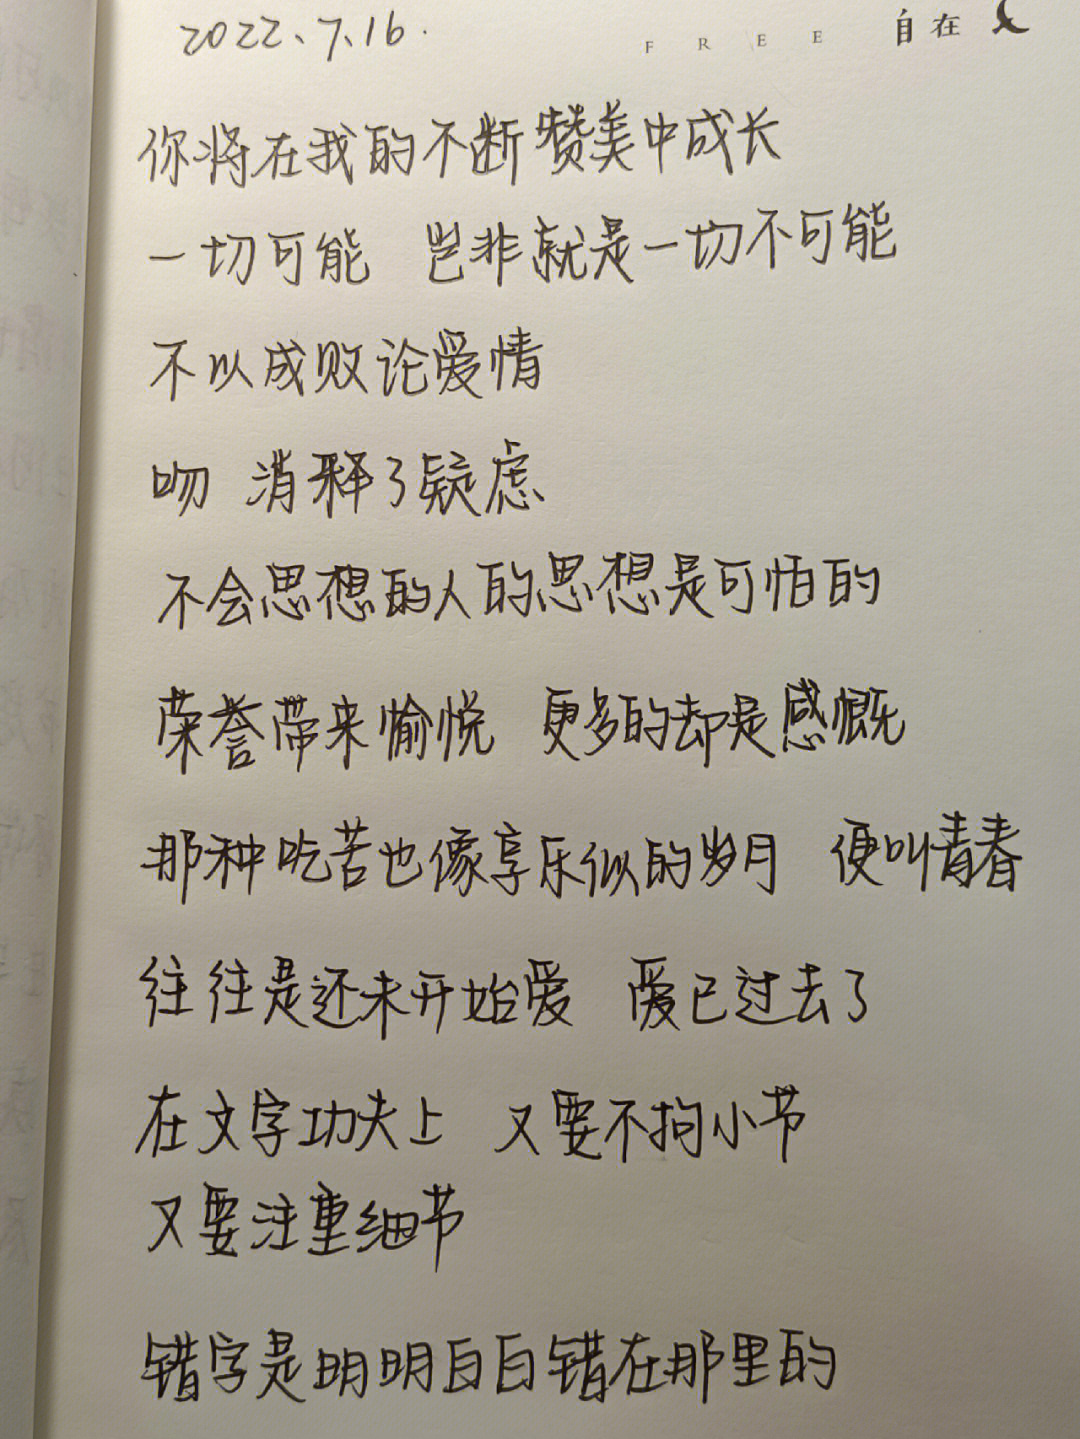 2022、7、16.
FREE 自在
你将在我的不断赞美中成长
一切可能 岂非就是一切不可能
不以成败论爱情
吻 消释了疑虑
不会思想的人的思想是可怕的
荣誉带来愉悦 更多的却是感慨
那种吃苦也像享乐似的岁月 便叫青春
往往是还未开始爱 爱已过去了
在文字功夫上 又要不拘小节
又要注重细节
错字是明明白白错在那里的